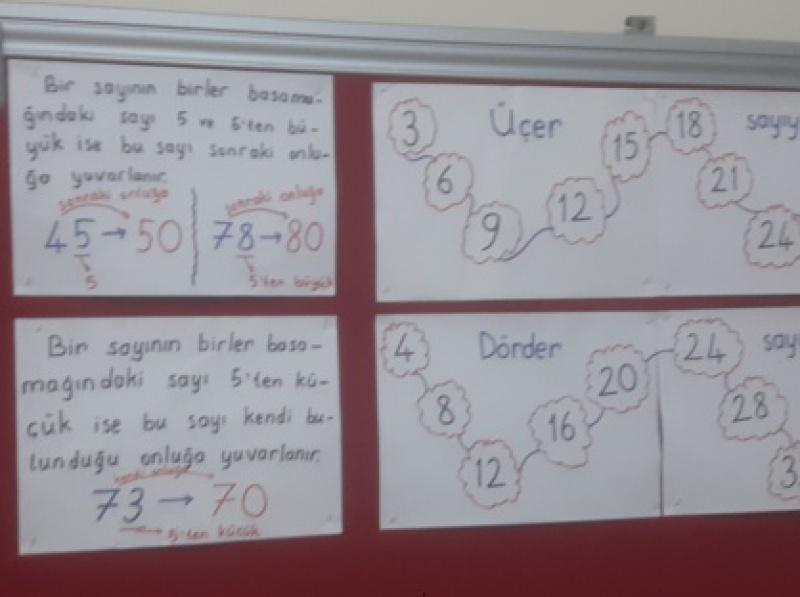 Bir sayının birler basama-
ğındaki sayı 5 ve 5'ten bü-
yük ise bu sayı sonraki onlu-
ğa yuvarlanır.
sonraki onluğa
45→50
5
sonraki onluğa
78→80
5'ten büyük
Bir sayının birler basa-
mağındaki sayı 5'ten kü-
çük ise bu sayı kendi bu-
lunduğu onluğa yuvarlanır.
kendi onluğa
73→70
5'ten küçük
Üçer
3 6 9 12 15 18 21 24
Dörder
4 8 12 16 20 24 28